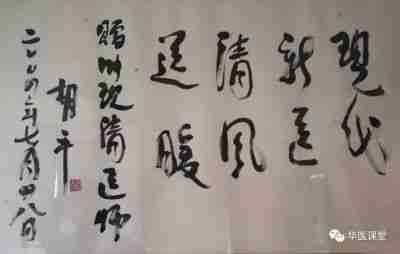 现代
新医
清风
送暖
赠现清医师
胡平
二〇〇四年七月廿八日
华医课堂